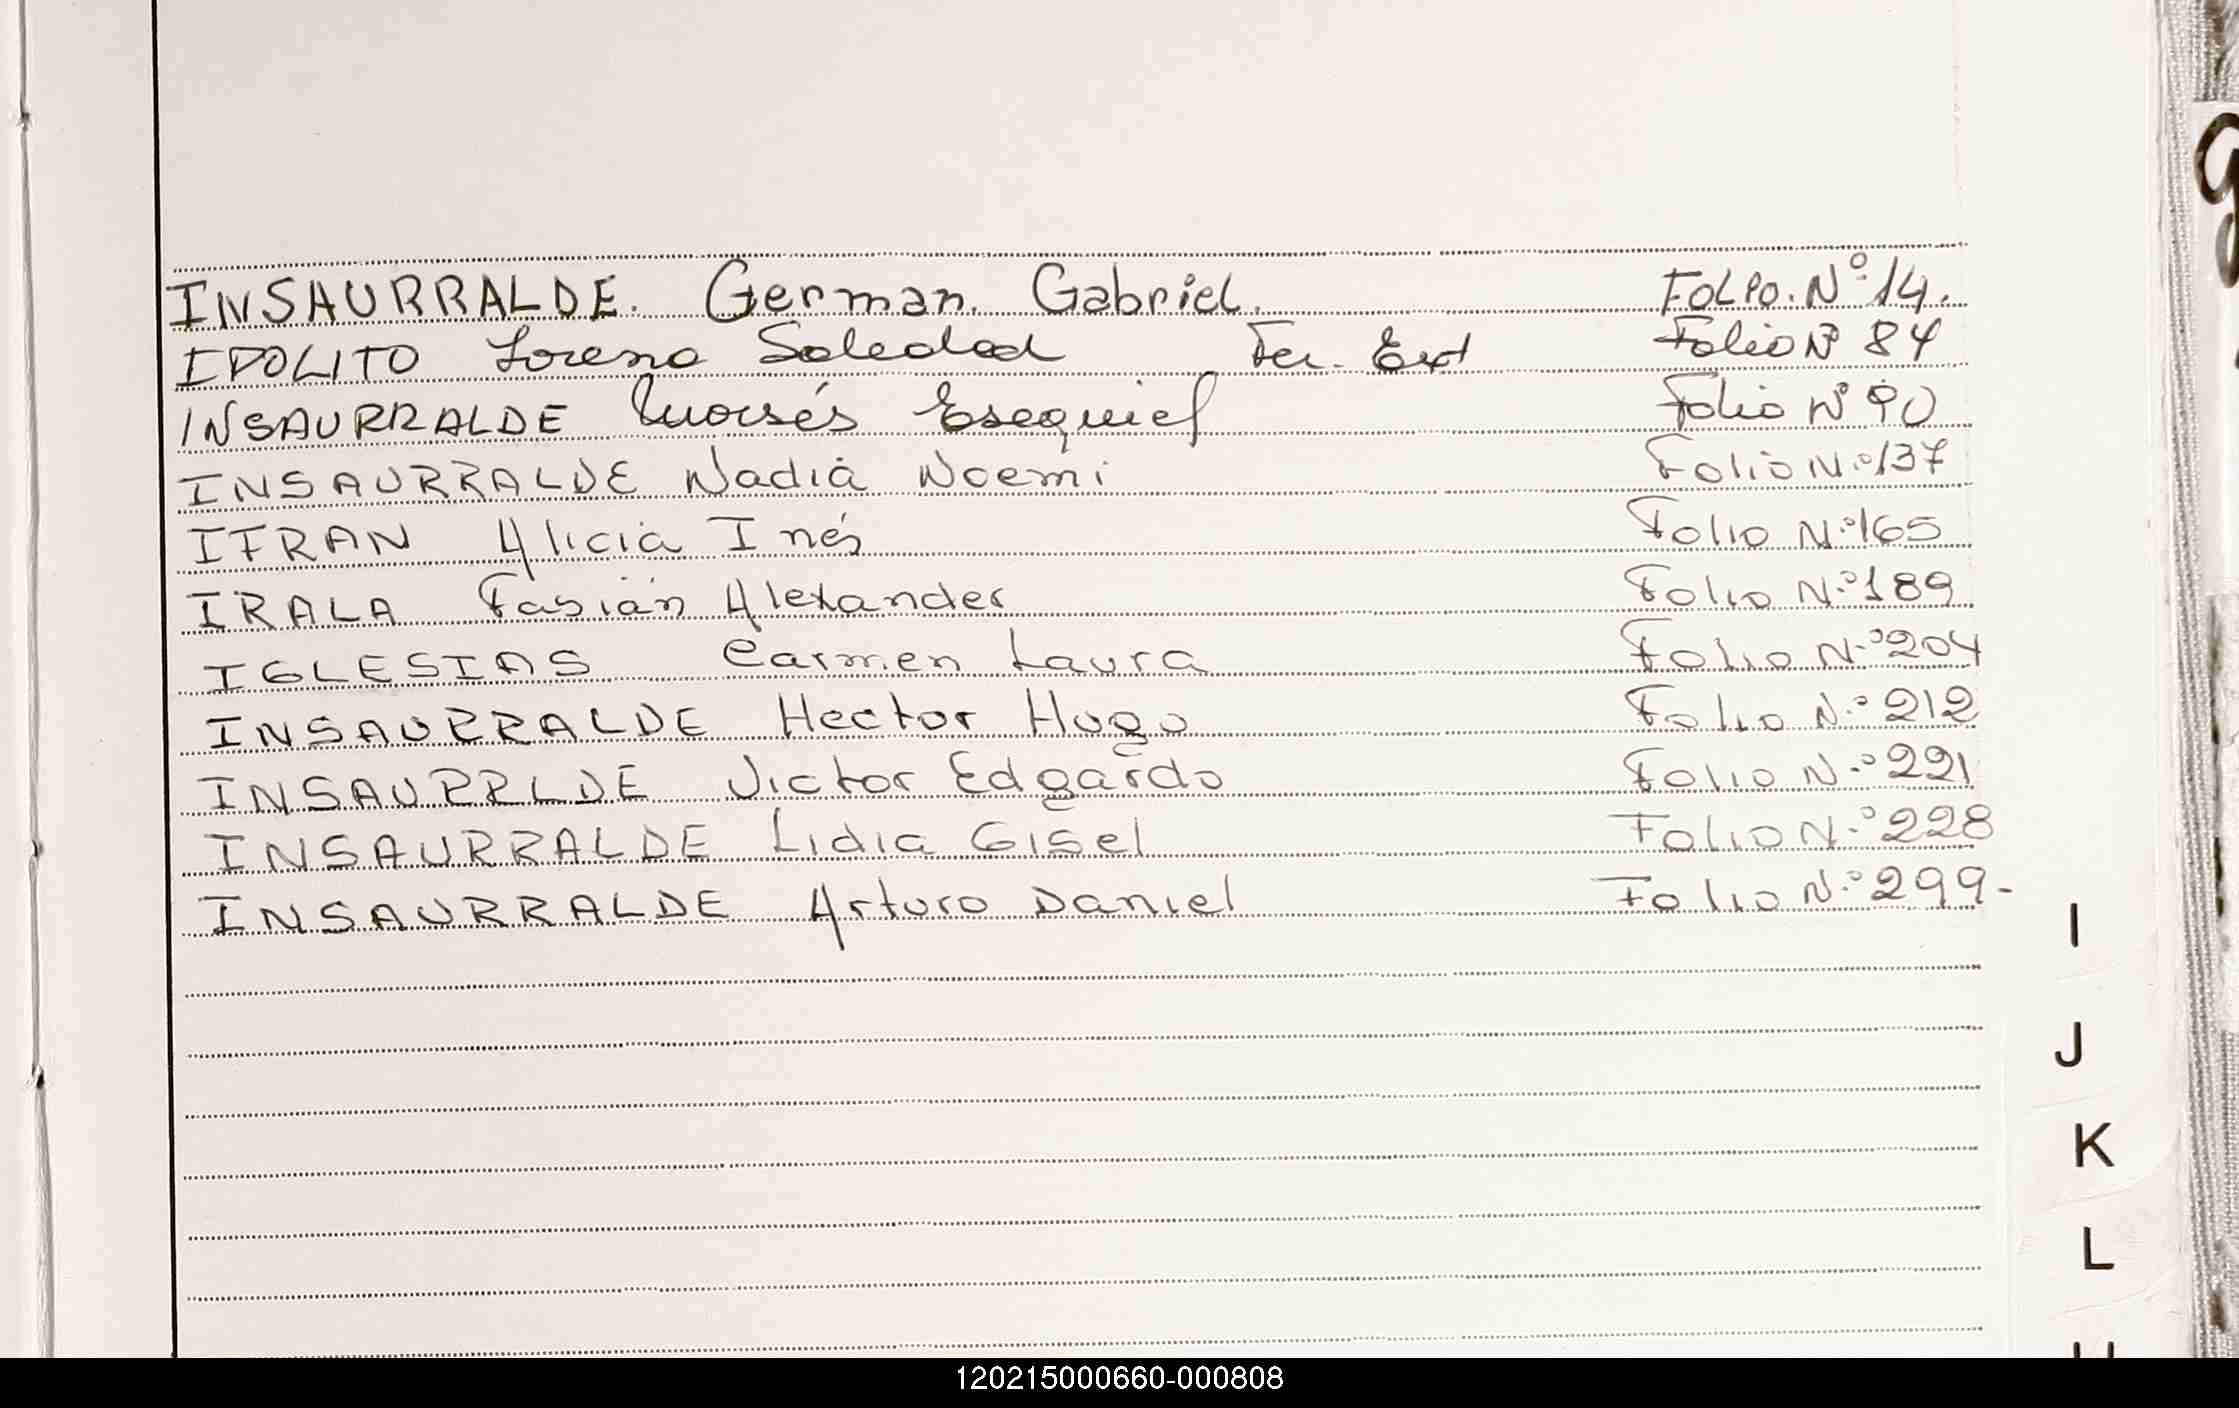 INSAURRALDE. German. Gabriel. FOLIO. Nº 14.
IPOLITO Lorena Soledad Ter. Ext Folio Nº 84
INSAURRALDE Moisés Esequiel Folio Nº 90
INSAURRALDE Nadia Noemi Folio N.º 137
IFRAN Alicia Inés Folio N.º 165
IRALA Fabián Alexander Folio N.º 189
IGLESIAS Carmen Laura Folio N.º 204
INSAURRALDE Hector Hugo Folio N.º 212
INSAURRLDE Victor Edgardo Folio N.º 221
INSAURRALDE Lidia Gisel Folio N.º 228
INSAURRALDE Arturo Daniel Folio N.º 299-
I
J
K
L
120215000660-000808